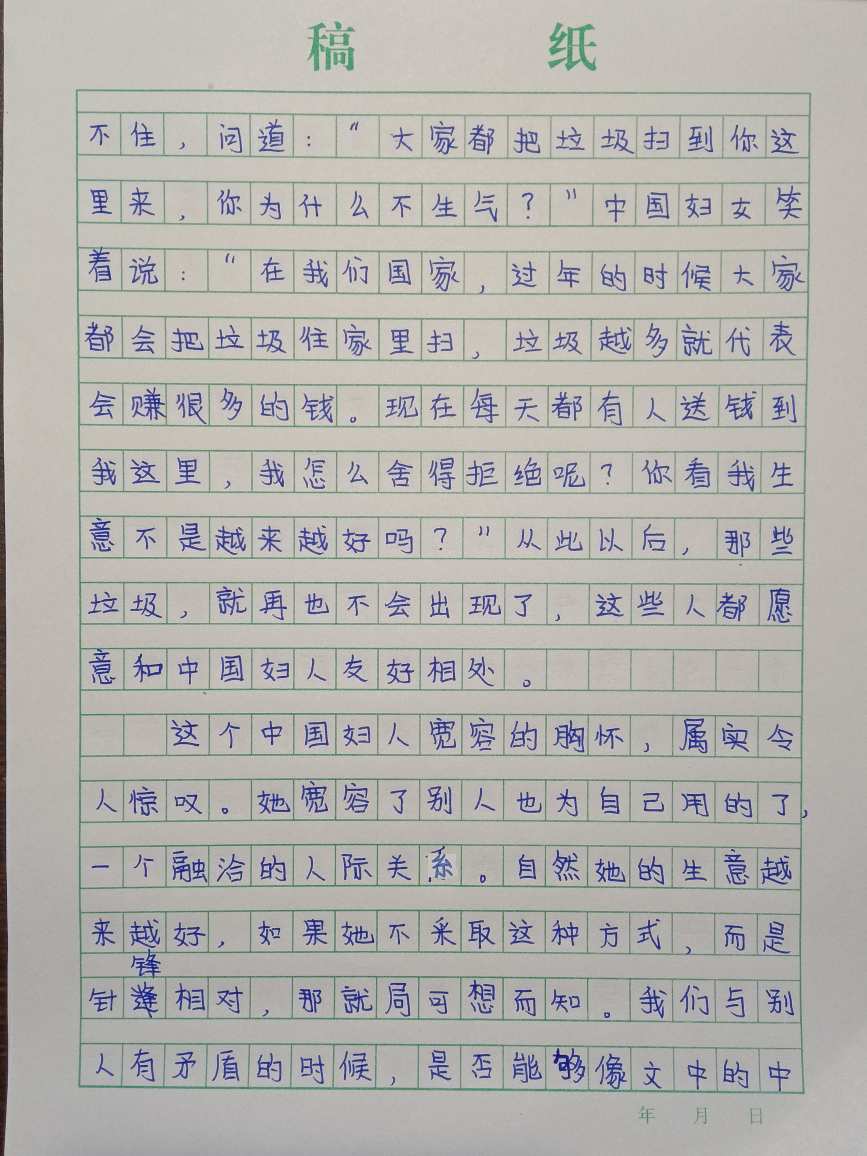 稿纸
不住，问道："大家都把垃圾扫到你这
里来，你为什么不生气？"中国妇女笑
着说："在我们国家，过年的时候大家
都会把垃圾住家里扫，垃圾越多就代表
会赚很多的钱。现在每天都有人送钱到
我这里，我怎么舍得拒绝呢？你看我生
意不是越来越好吗？"从此以后，那些
垃圾，就再也不会出现了，这些人都愿
意和中国妇人友好相处。
这个中国妇人宽容的胸怀，属实令
人惊叹。她宽容了别人也为自己用的了，
一个融洽的人际关系。自然她的生意越
来越好，如果她不采取这种方式，而是
锋
针缝相对，那就局可想而知。我们与别
人有矛盾的时候，是否能够像文中的中
年 月 日